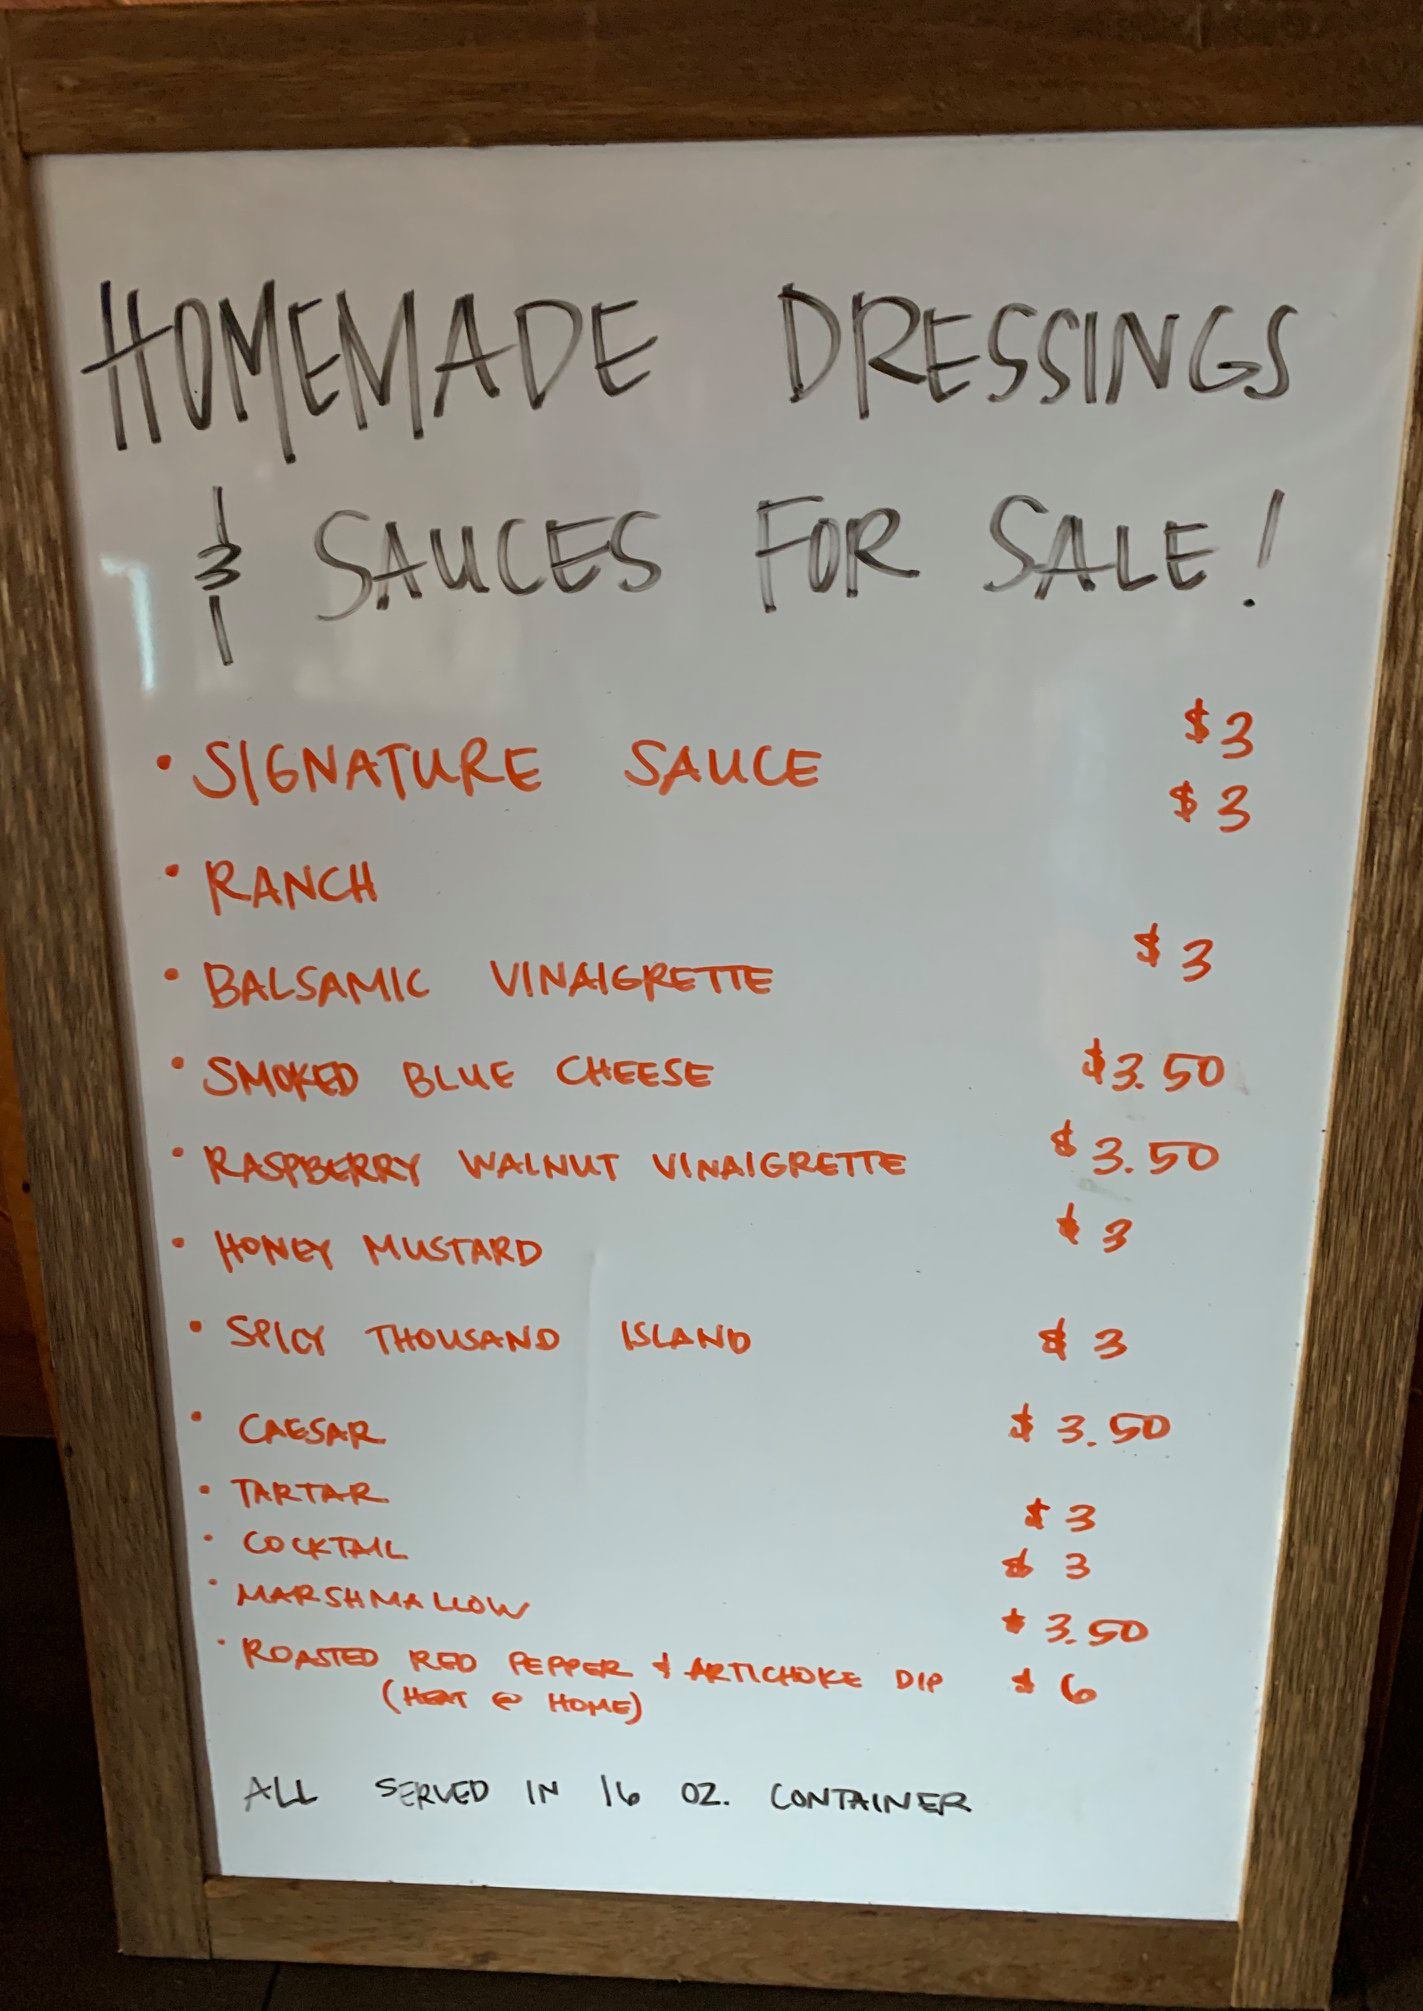 HOMEMADE DRESSINGS
& SAUCES FOR SALE!
• SIGNATURE SAUCE $3
• RANCH $3
• BALSAMIC VINAIGRETTE $3
• SMOKED BLUE CHEESE $3.50
• RASPBERRY WALNUT VINAIGRETTE $3.50
• HONEY MUSTARD $3
• SPICY THOUSAND ISLAND $3
• CAESAR $3.50
• TARTAR $3
• COCKTAIL $3
• MARSHMALLOW $3.50
• ROASTED RED PEPPER & ARTICHOKE DIP $6
(HEAT @ HOME)
ALL SERVED IN 16 OZ. CONTAINER